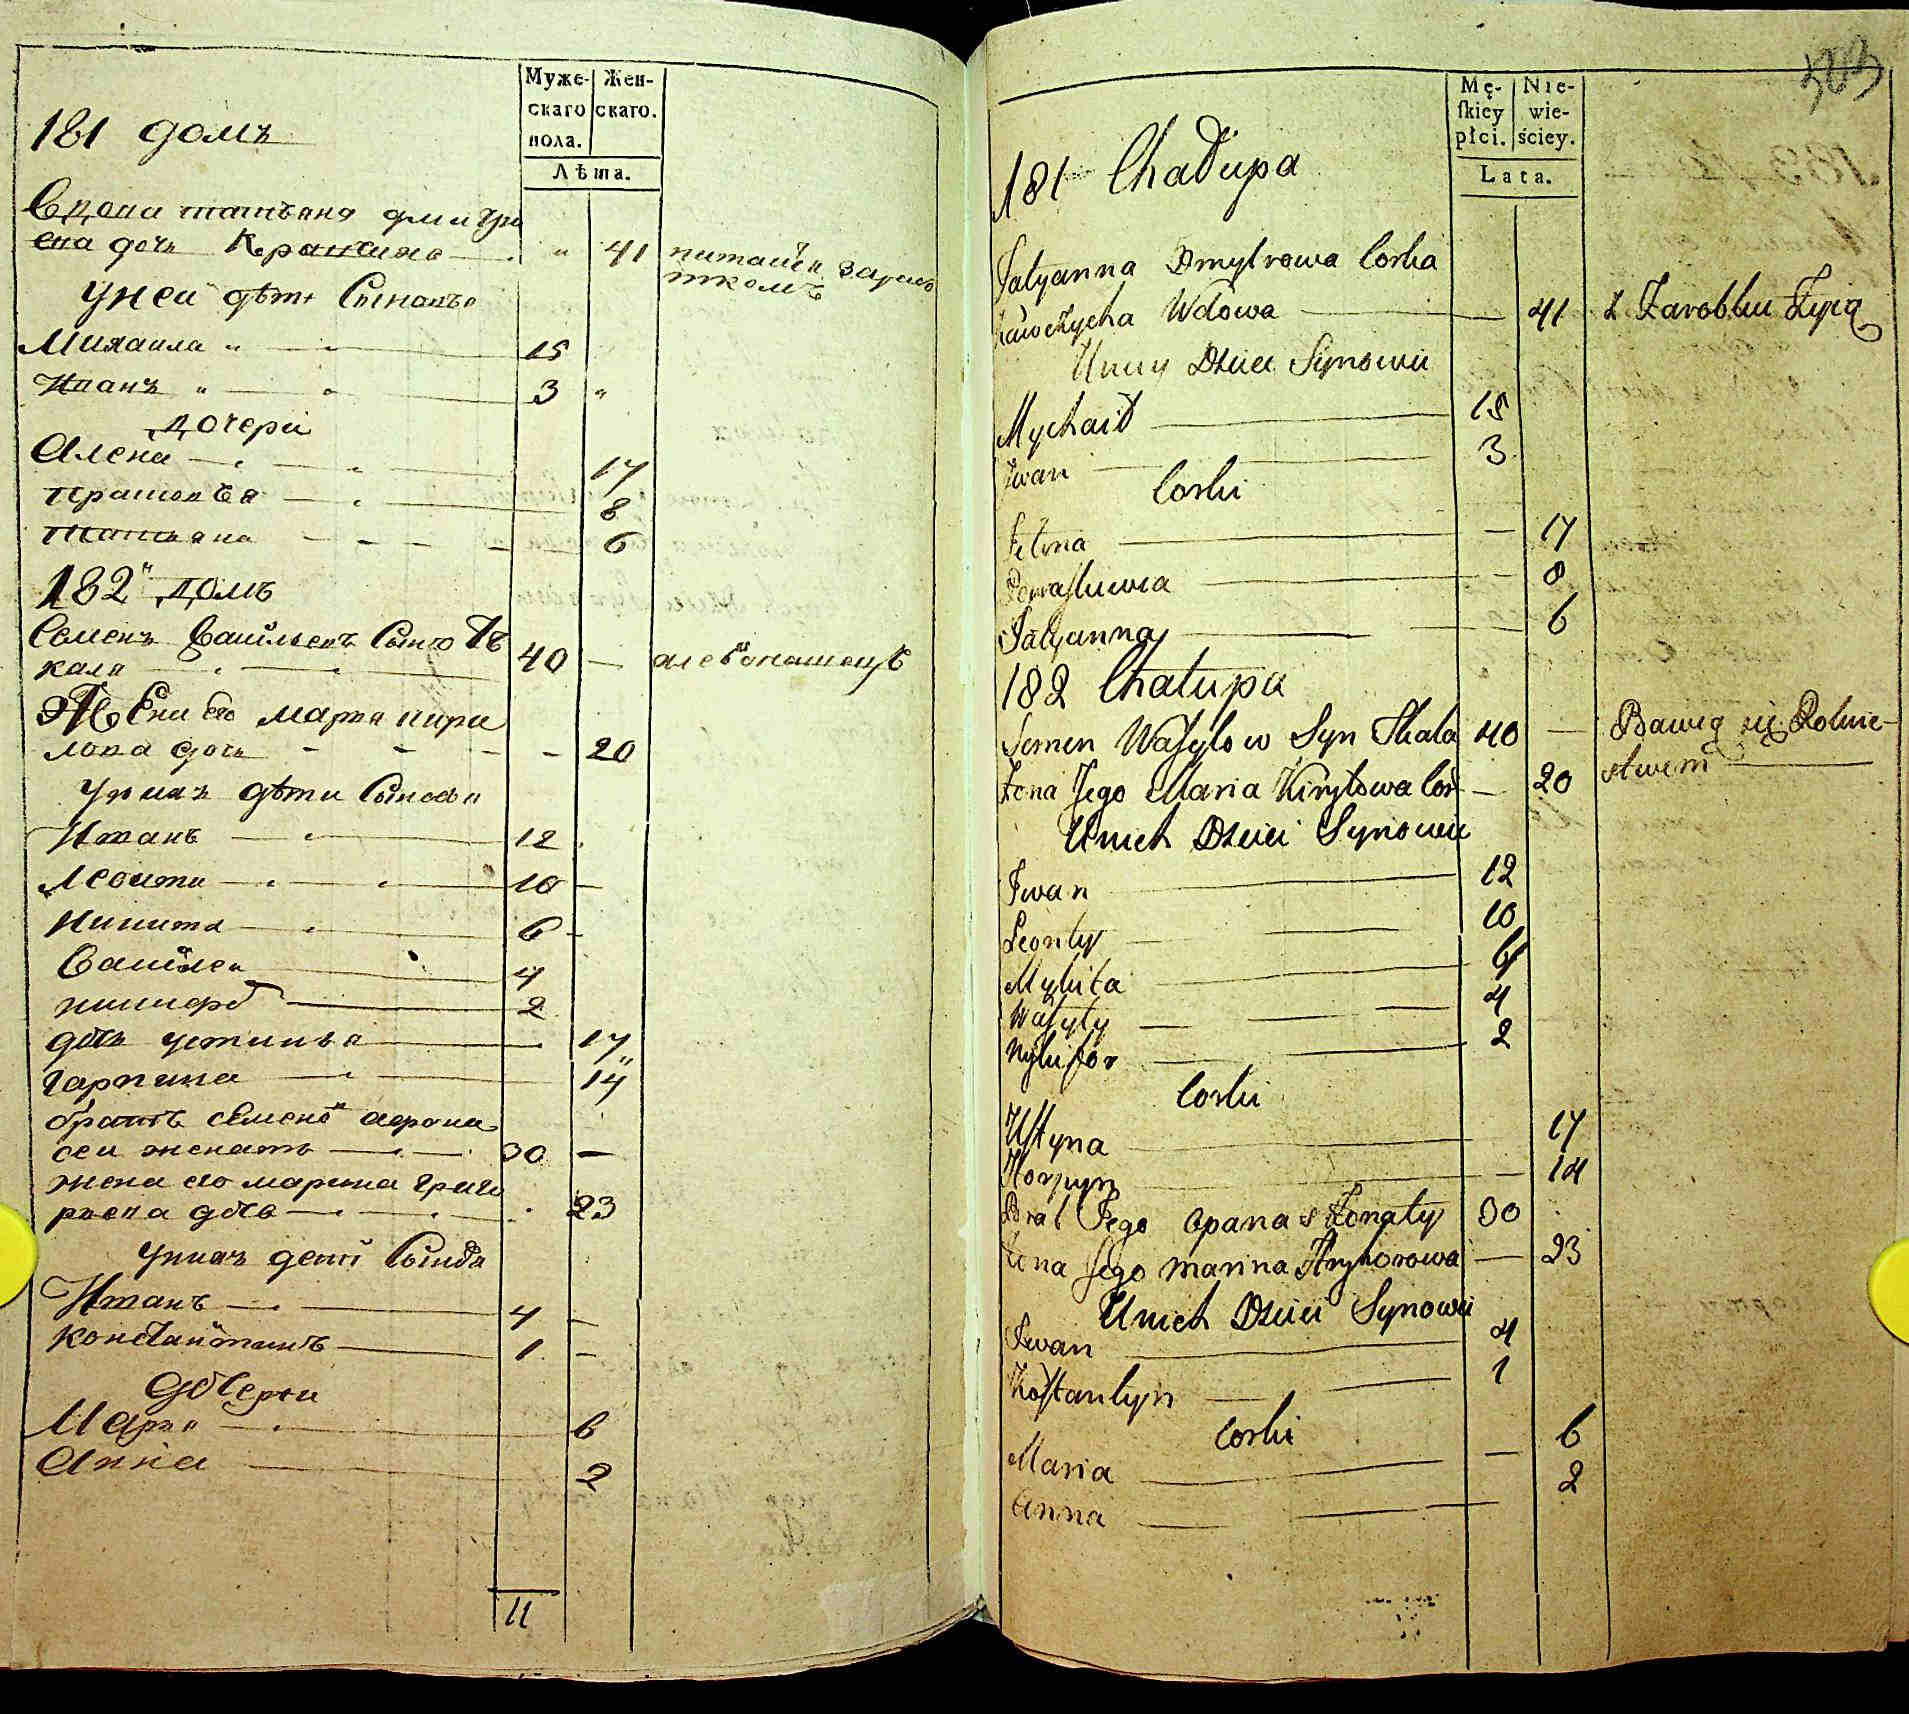 Муже-
скаго
пола.
Жен-
скаго.
Лѣта.
181 домъ
Вдова татьяна дмитро
ева дочь
" 41 питаиса зароб
ткомъ
Уней дѣти Сынова
Михаила " 15
Иванъ " 3 "
дочери
Алена 17
прасковѣя 8
татияна 6
182" домъ
Семенъ Василевъ Сынъ
кала 40 —
Жена его мария кири
лова дочь 20
Уних дѣти Сынова
Иванъ 12
Леонти 10 —
Никита 6 —
Василеи 4
никифоръ 2
дочь устинья 17
гарпина 14
братъ семена афона
сеи женатъ 30 —
жена его марина григо
рьева дочь 23
Уних дети Сынови
Иванъ 4 —
Константинъ 1 —
дочери
Мария 6
Анна 2
11
Mę-
ſkiey
płci.
Nie-
wie-
ściey.
Lata.
181 Chałupa
Tatyanna Dmytrowa Corka
Wdowa — 41 z Zarobku Żyią
Uniey Dzieci Synowie
Mychaił 15
Iwan 3
Corki
Jełena — 17
Poraskiewia — 8
Tatyanna 6
182 Chałupa
Semen Wasylow Syn Skala 40 — Bawią się Rolnic-
Żona Jego Maria Kiryłowa Cor — 20 stwem
Unich Dzieci Synowie
Iwan 12
Leonty 10
Mykita 6
Wasyly 4
Nykifor 2
Corki
Ustyna 17
Horpyn — 14
Brat Jego Opanas Żonaty 30
Żona Jego Marina Hryhorowa — 23
Unich Dzieci Synowie
Iwan 4
Kostantyn 1
Corki
Maria — 6
Anna 2